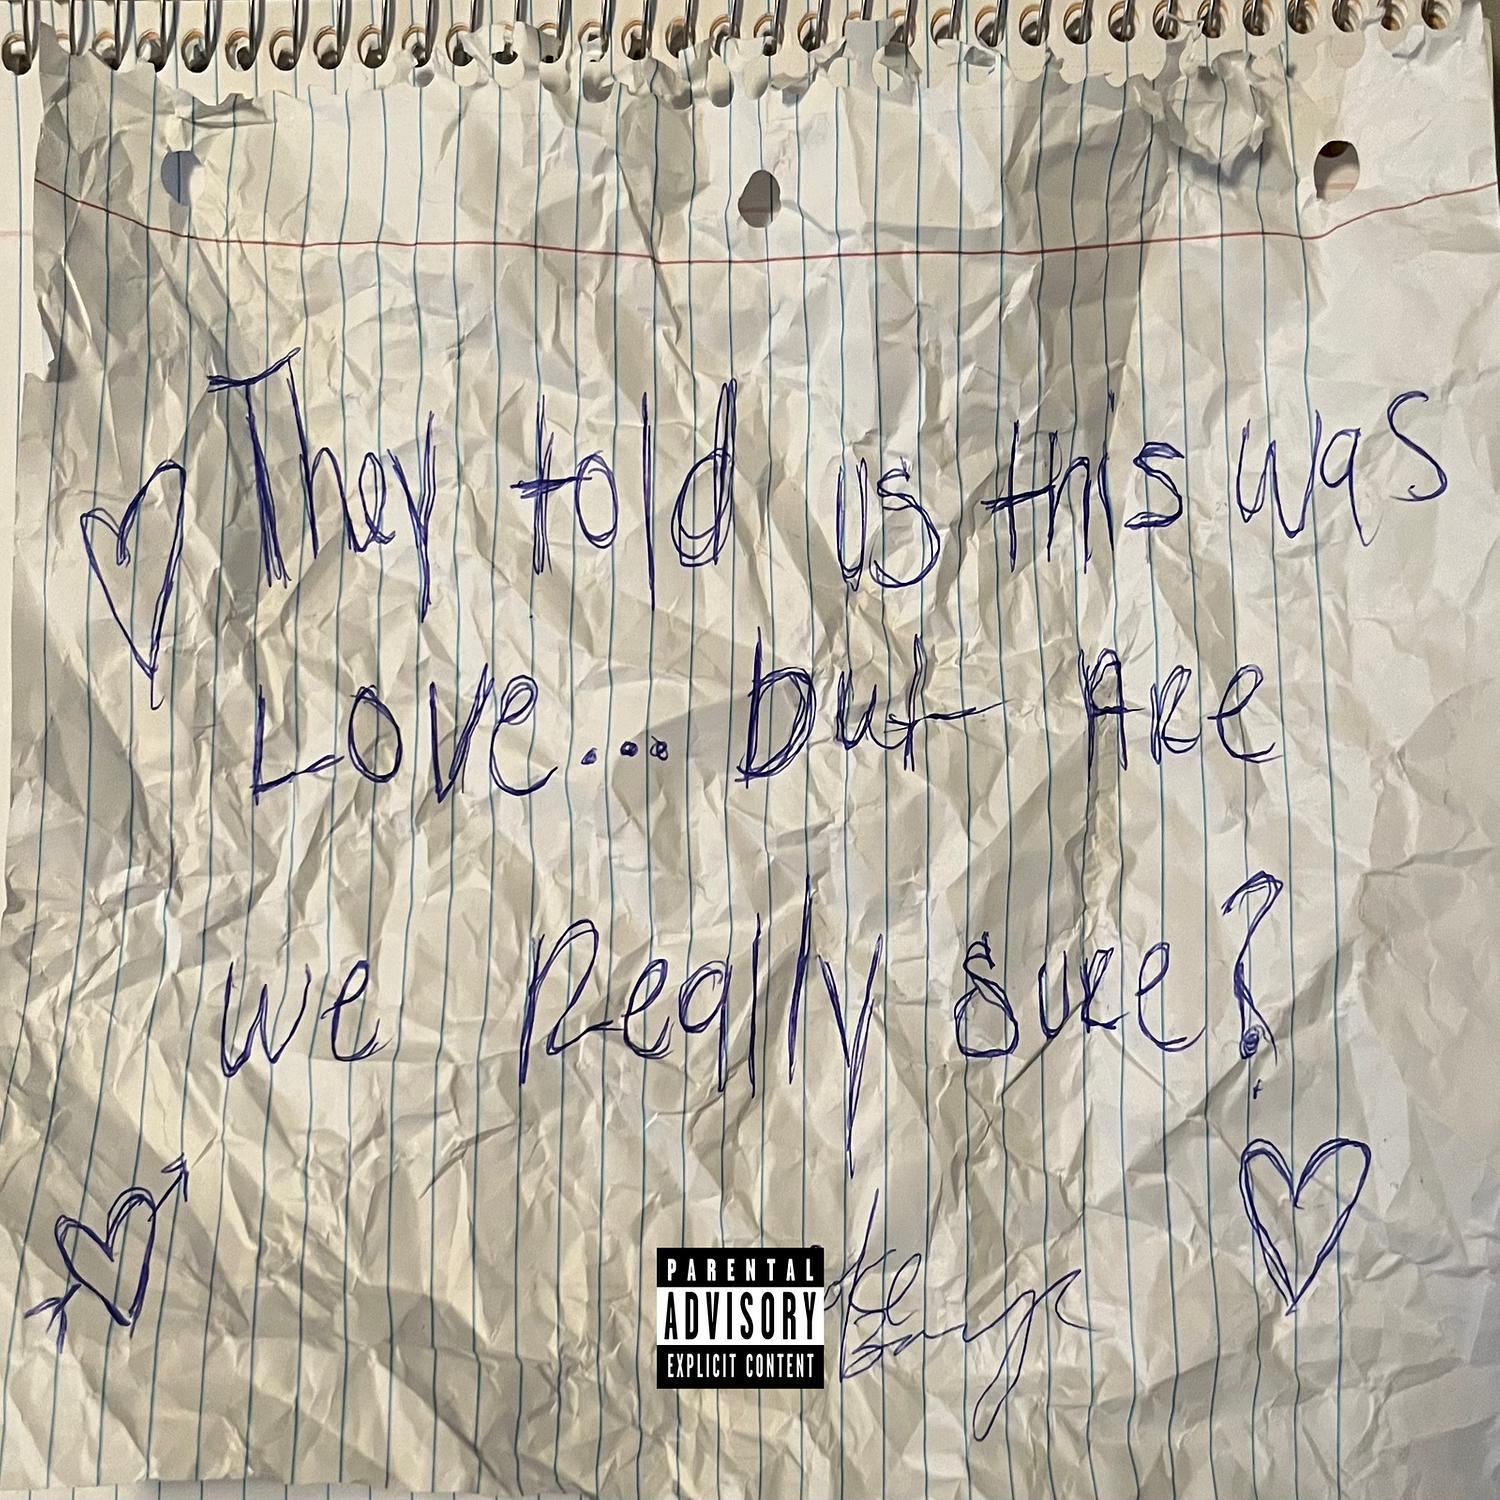 They told us this was
Love... but Are
we Really sure?
PARENTAL
ADVISORY
EXPLICIT CONTENT